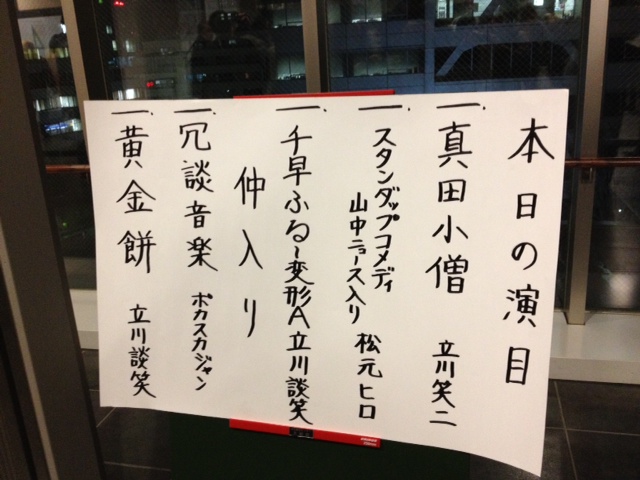 本日の演目
一、真田小僧 立川笑二
一、スタンダップコメディ
山中ニュース入り 松元ヒロ
一、千早ふる〜変形A 立川談笑
仲入り
一、冗談音楽 ポカスカジャン
一、黄金餅 立川談笑